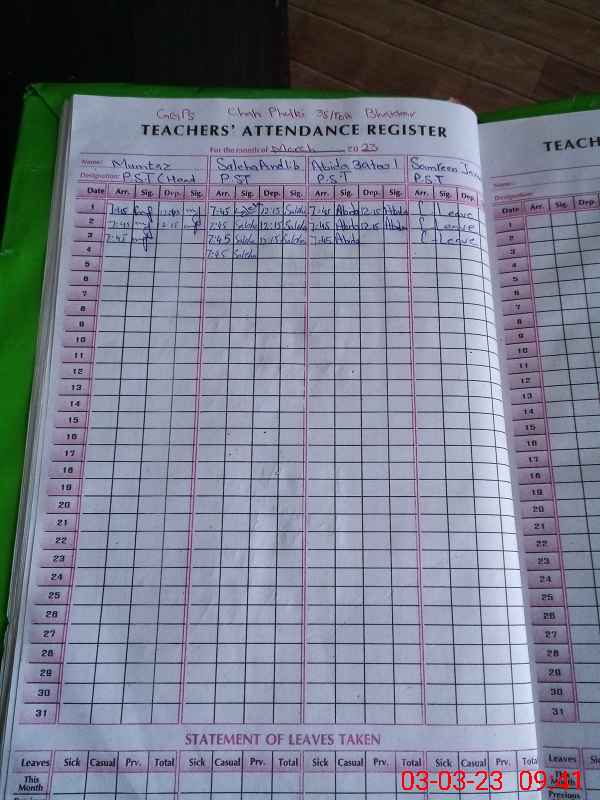 GGPS Chak Phatki 35/TDA Bhakkar
TEACHERS' ATTENDANCE REGISTER
TEACH
For the month of March 2023
Name: Mumtaz Saleha Andlib Abida Batool Samreen
Name:
Designation: P.S.T (Head P.S.T P.S.T P.S.T
Designation:
Date Arr. Sig. Dep. Sig. Arr. Sig. Dep. Sig. Arr. Sig. Dep. Sig. Arr. Sig. Dep.
Date Arr. Sig. Dep. Sig.
1 7:45 7:45 12:15 Saleha 7:45 Abida 12:15 Abida Leave
2 7:45 12:15 7:45 Saleha 12:15 Saleha 7:45 Abida 12:15 Abida Leave
3 7:45 7:45 Saleha 12:15 Saleha 7:45 Abida Leave
4 7:45 Saleha
5
6
7
8
9
10
11
12
13
14
15
16
17
18
19
20
21
22
23
24
25
26
27
28
29
30
31
1
2
3
4
5
6
7
8
9
10
11
12
13
14
15
16
17
18
19
20
21
22
23
24
25
26
27
28
29
30
31
STATEMENT OF LEAVES TAKEN
Leaves Sick Casual Prv. Total Sick Casual Prv. Total Sick Casual Prv. Total Sick Casual Prv. Total
Leaves Sick Casual
This Month
This Month
Previous
03-03-23 09:41